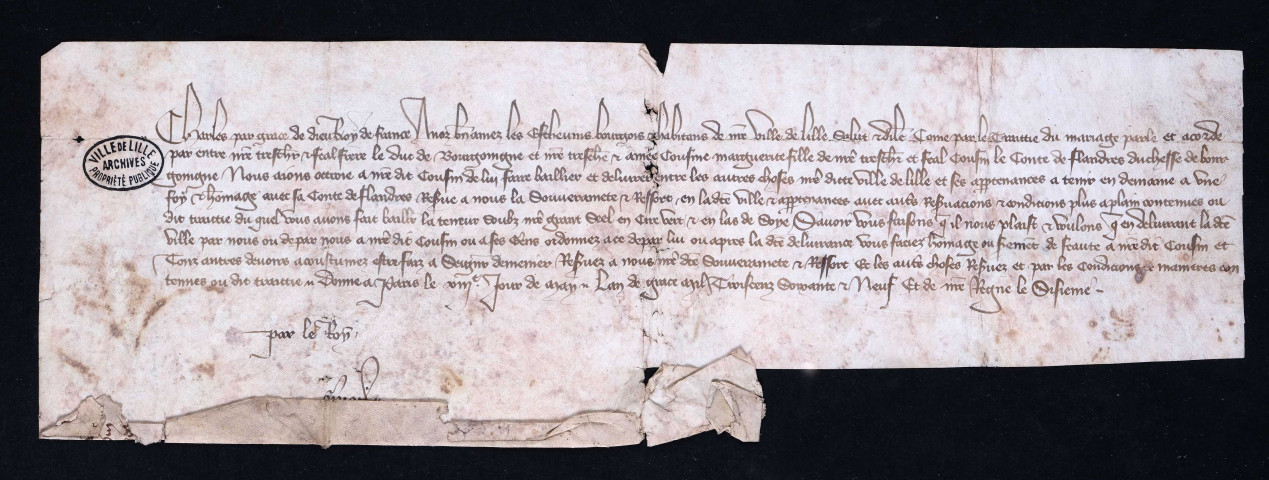 Charles par grace de dieu Roy de france A noz bn amez les Escheuins bourgois & habitans de nre ville de lille Salut & dilc Come par le Traittie du mariage parle et acorde
par entre nre treschr & feal frere le duc de Bourgoingne et nre treschr & amee Cousine marguerite fille de nre treschr et feal Cousin le Conte de flandres duchesse de bour
goingne Nous aions octroie a nre dit Cousin de lui faire baillier et deliurer entre les autres choses nre dicte ville de lille et ses apptenances a tenir en demaine a vne
foy & homage auec sa Conte de flandres Resrue a nous la Souuerainete & Ressort en la dte ville & apptenances auec autrs Resruacions & condicions plus a plain contenues ou
dit traittie du quel vous auons fait baillr la teneur soubz nre grant Seel en Cire vert & en las de Soye Sauoir vous faisons q il nous plaist & voulons q en deliurant la dte
ville par nous ou de par nous a nre dit Cousin ou a ses Gens ordonnez a ce de par lui ou apres la dte deliurance vous faciez homage ou sremet de feaute a nre dit Cousin et
Touz autres deuoirs acoustumez estre faiz a Seignr demeinier Resruez a nous nre dte Souuerainete & Ressort Et les autrs choses Resruez et par les Condicions & manieres con
tenues ou dit traittie Donne a Paris le Jour de May Lan de grace mil Troiscenz Soixante & Neuf Et de nre Regne le Sisieme
par le Roy
VILLE DE LILLE
ARCHIVES
PROPRIÉTÉ PUBLIQUE